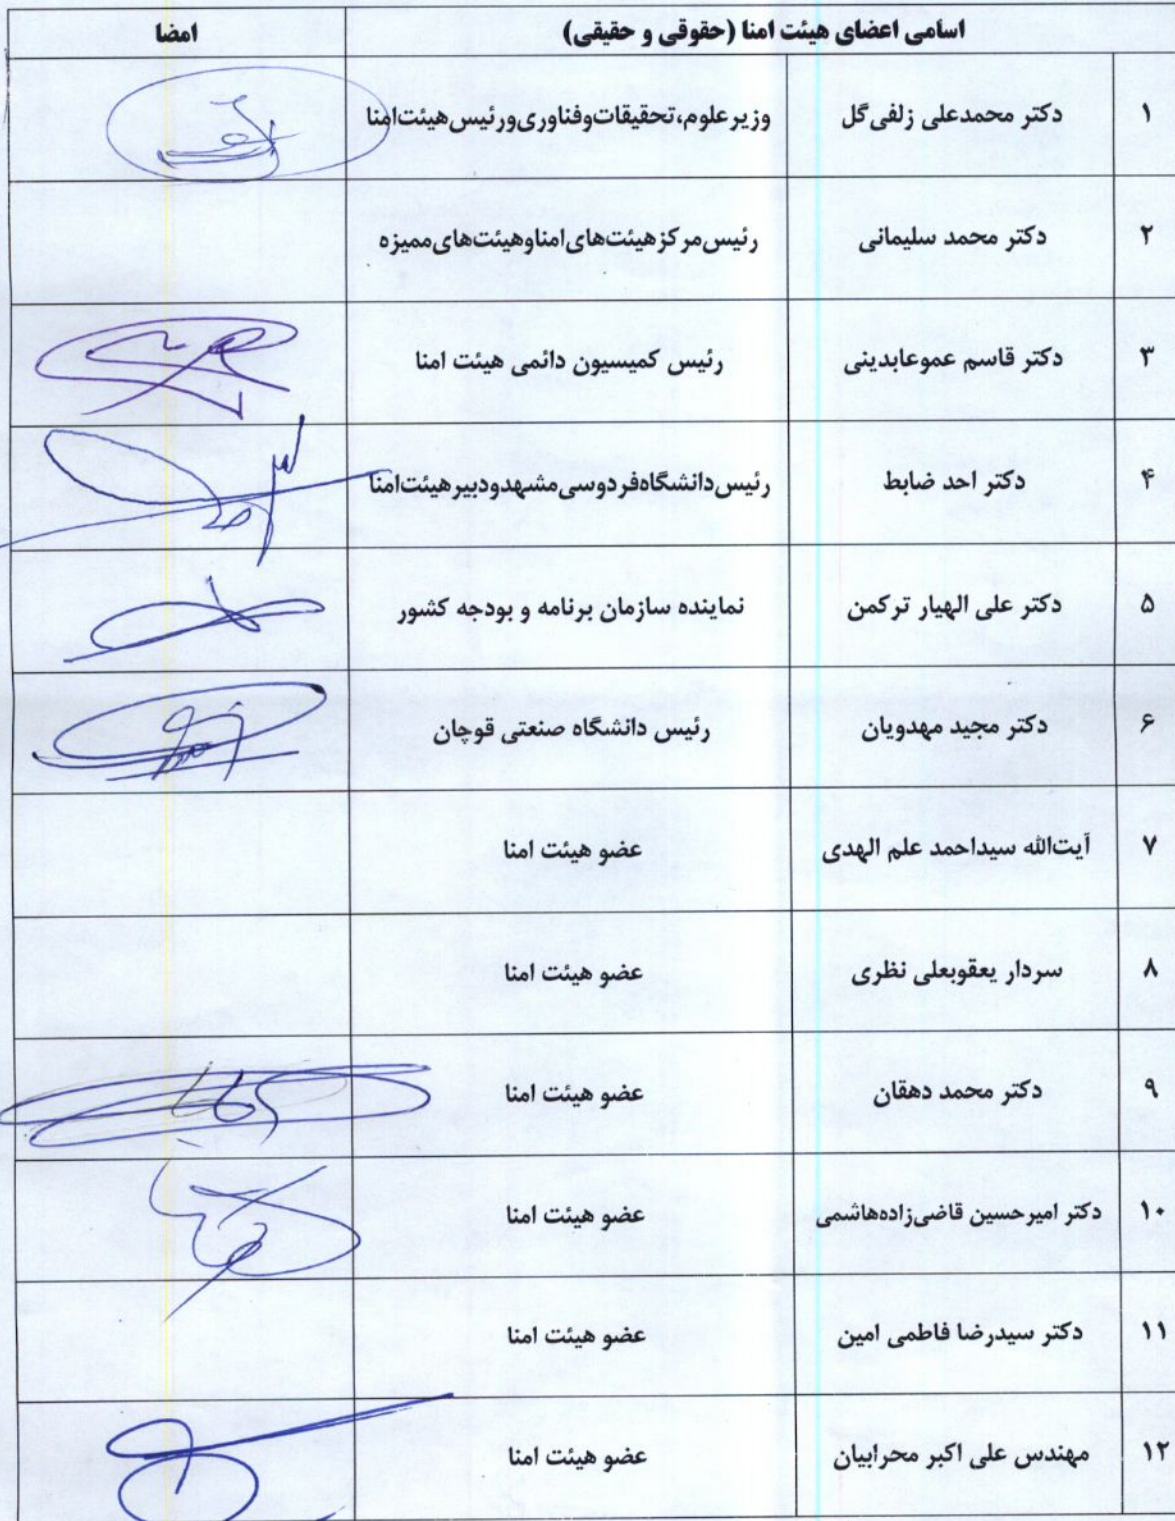 اسامی اعضای هیئت امنا (حقوقی و حقیقی) امضا
۱ دکتر محمدعلی زلفی‌گل وزیرعلوم،تحقیقات‌وفناوری‌ورئیس‌هیئت‌امنا
۲ دکتر محمد سلیمانی رئیس‌مرکزهیئت‌های‌امناوهیئت‌های‌ممیزه
۳ دکتر قاسم عموعابدینی رئیس کمیسیون دائمی هیئت امنا
۴ دکتر احد ضابط رئیس‌دانشگاه‌فردوسی‌مشهدودبیرهیئت‌امنا
۵ دکتر علی الهیار ترکمن نماینده سازمان برنامه و بودجه کشور
۶ دکتر مجید مهدویان رئیس دانشگاه صنعتی قوچان
۷ آیت‌الله سیداحمد علم الهدی عضو هیئت امنا
۸ سردار یعقوبعلی نظری عضو هیئت امنا
۹ دکتر محمد دهقان عضو هیئت امنا
۱۰ دکتر امیرحسین قاضی‌زاده‌هاشمی عضو هیئت امنا
۱۱ دکتر سیدرضا فاطمی امین عضو هیئت امنا
۱۲ مهندس علی اکبر محرابیان عضو هیئت امنا